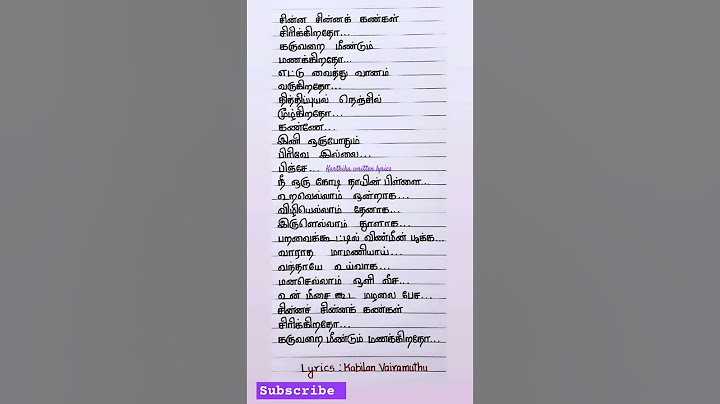 சின்ன சின்னக் கண்கள்
சிரிக்கிறதோ...
கருவறை மீண்டும்
மணக்கிறதோ...
எட்டு வைத்து வானம்
வருகிறதோ...
தித்திப்புயல் நெஞ்சில்
மூழ்கிறதோ...
கண்ணே...
இனி ஒருபோதும்
பிரிவே இல்லை...
பிஞ்சே... Karthika written lyrics
நீ ஒரு கோடி தாயின் பிள்ளை...
உறவெல்லாம் ஒன்றாக...
விழியெல்லாம் தேனாக...
இருளெல்லாம் தூளாக...
பறவைக்கூட்டில் விண்மீன் பூக்க...
வாராத மாமணியாய்...
வந்தாயே உய்வாக...
மனசெல்லாம் ஒளி வீச...
உன் மீசை கூட மழலை பேச...
சின்னச் சின்னக் கண்கள்
சிரிக்கிறதோ...
கருவறை மீண்டும் மணக்கிறதோ...
Lyrics : Kabilan Vairamuthu
Subscribe